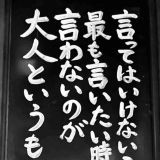 言ってはいけない
最も言いたい時
言わないのが
大人というも